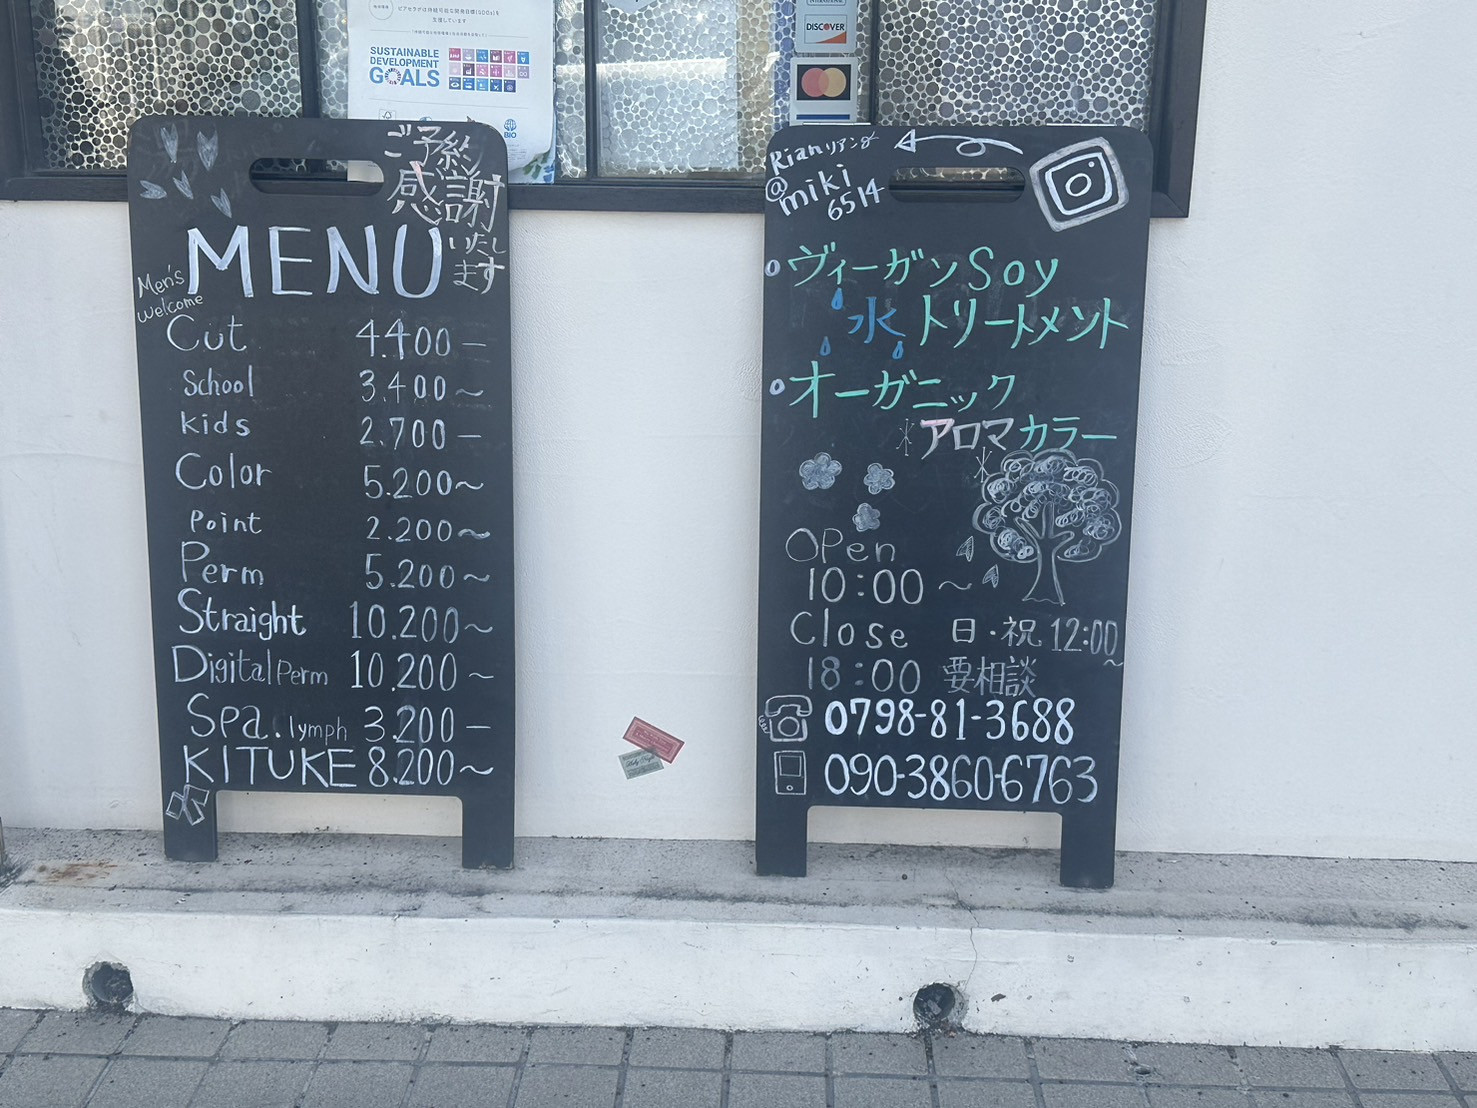 ピアセラは持続可能な開発目標(SDGs)を
支援しています
SUSTAINABLE
DEVELOPMENT
GOALS
BIO
DISCOVER
ご予約
感謝
いたし
ます
MENU
Men's
welcome
Cut 4.400―
School 3.400～
kids 2.700―
Color 5.200～
Point 2.200～
Perm 5.200～
Straight 10.200～
Digital Perm 10.200～
Spa.lymph 3.200―
KITUKE 8.200～
Rianリアン
@miki
6514
ヴィーガンSoy
水トリートメント
オーガニック
アロマカラー
OPen
10:00～
Close 日・祝12:00～
18:00 要相談
0798-81-3688
090-3860-6763